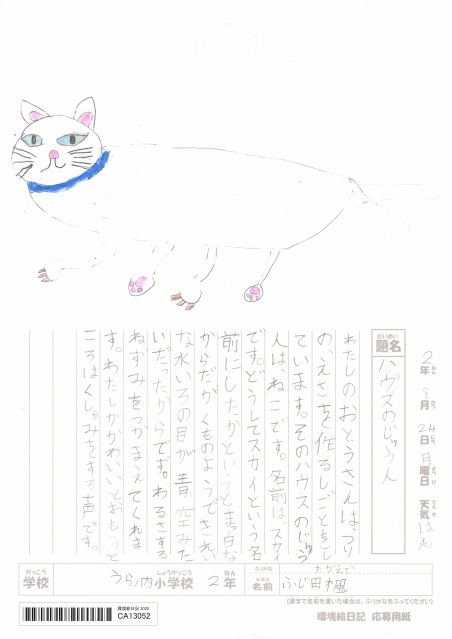 2年 8月 24日 日曜日 天気 はれ
だいめい
題名
ハウスのじゅう人
わたしのおとうさんは、つり
の、えさを作るしごとをし
ています。そのハウスのじゅう
人は、ねこです。名前は、スカイ
です。どうしてスカイという名
前にしたかというと、ま、白な
からだがくものようできれい
な水いろの目が青空みた
いだったからです。わるさする
ねずみをつかまえてくれま
す。わたしがかわいいとおもっと
ころはくしゃみをする声です。
がっこう
学校
うらノ内小学校 2年
しょうがっこう
ねん
ふりがな
なまえ
名前
ふじ田
(漢字で名前を書いた場合は、ふりがなをふってください)
環境絵日記 2020
CA13052
環境絵日記 応募用紙